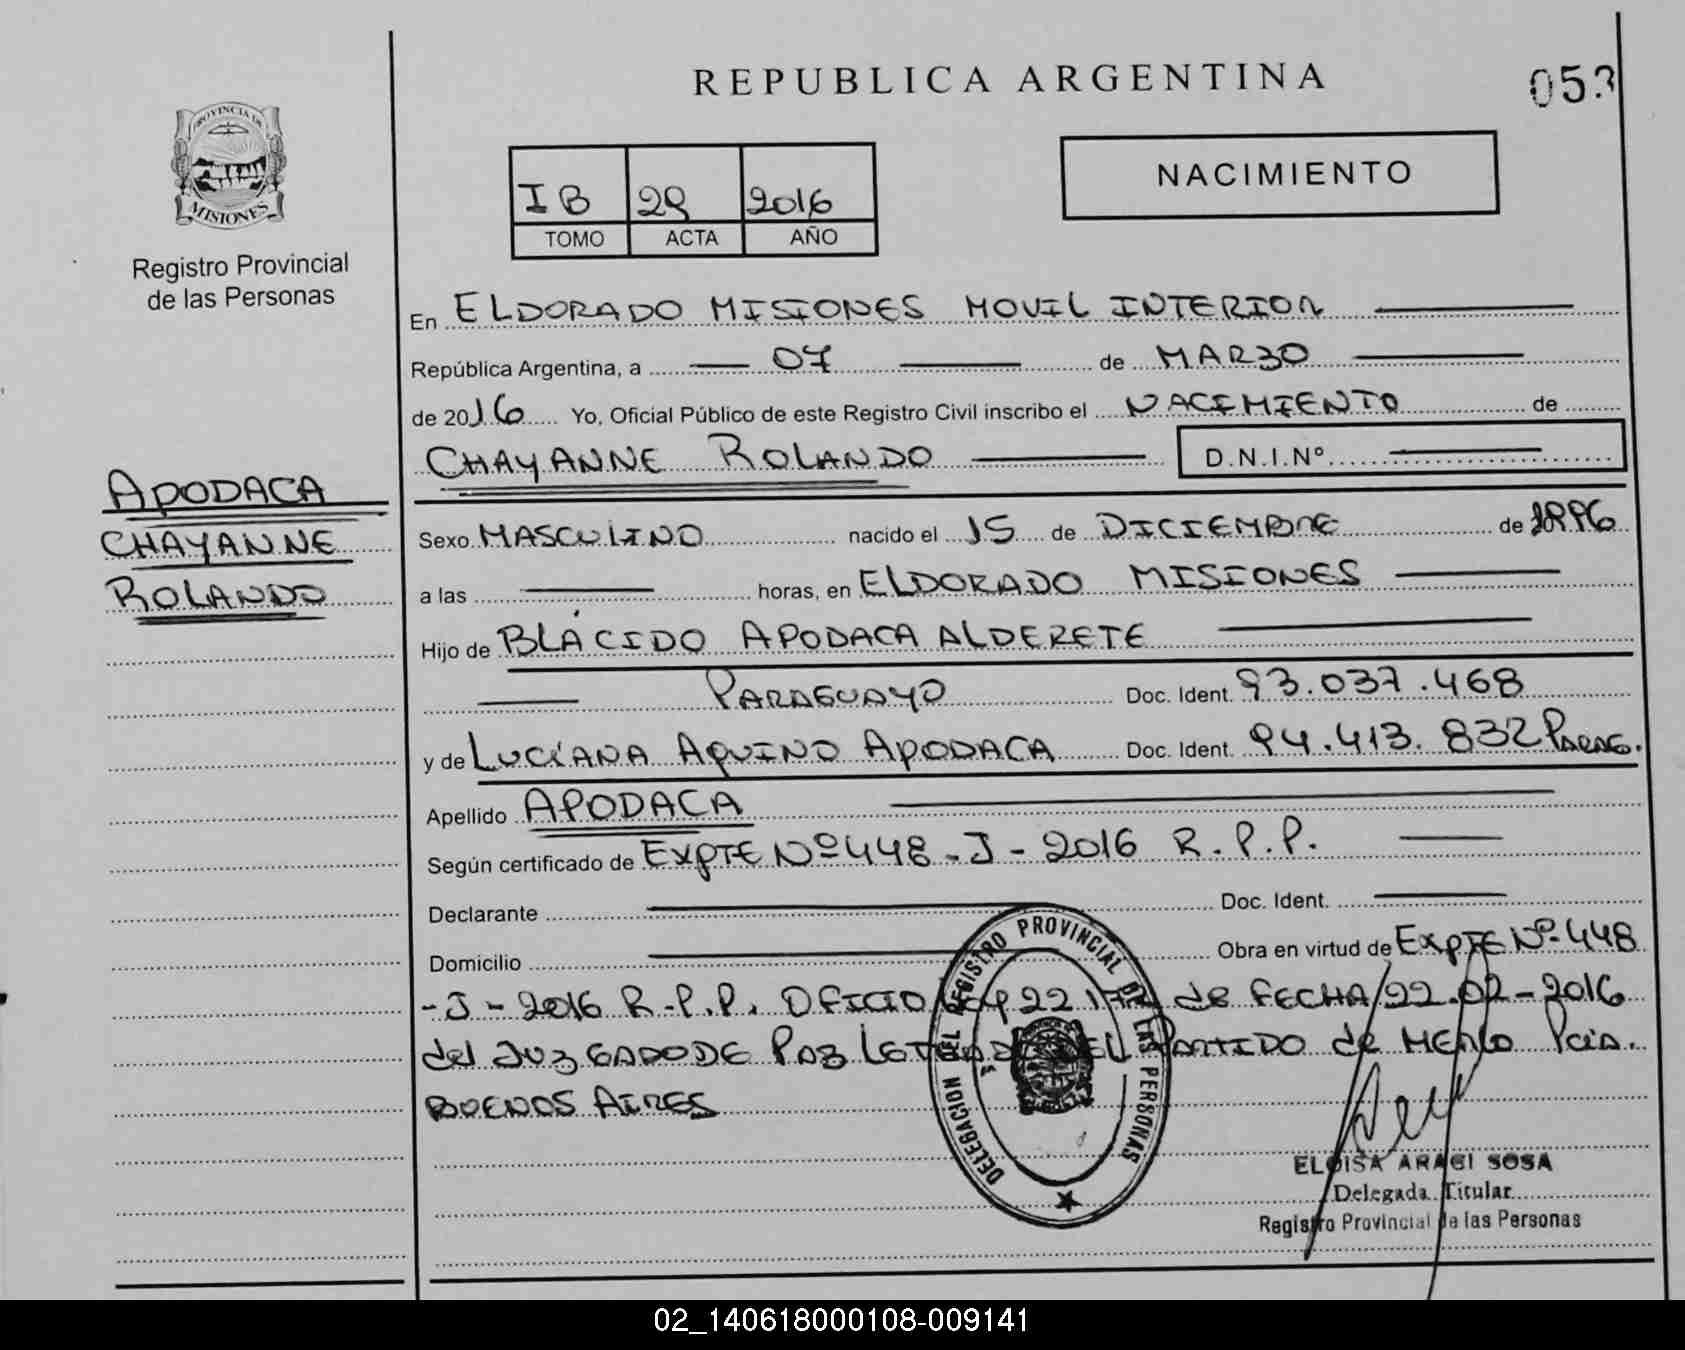 REPUBLICA ARGENTINA
053
PROVINCIA DE
MISIONES
Registro Provincial
de las Personas
IB 29 2016
TOMO ACTA AÑO
NACIMIENTO
En ELDORADO MISIONES MOVIL INTERIOR
República Argentina, a 07 de MARZO
de 2016 Yo, Oficial Público de este Registro Civil inscribo el NACIMIENTO de
CHAYANNE ROLANDO D.N.I.Nº
APODACA
CHAYANNE
ROLANDO
Sexo MASCULINO nacido el 15 de DICIEMBRE de 1996
a las horas, en ELDORADO MISIONES
Hijo de BLÁCIDO APODACA ALDERETE
PARAGUAYO Doc. Ident. 93.037.468
y de LUCIANA AQUINO APODACA Doc. Ident. 94.413.832 PARAG.
Apellido APODACA
Según certificado de EXPTE Nº 448-J-2016 R.P.P.
Declarante Doc. Ident.
Domicilio Obra en virtud de EXPTE Nº 448
-J-2016 R.P.P. OFICIO de FECHA 22-02-2016
del JUZGADO DE PAZ PARTIDO de MERLO Pcia.
BUENOS AIRES
DELEGACION DEL REGISTRO PROVINCIAL DE LAS PERSONAS
ELOISA ARAGI SOSA
Delegada Titular
Registro Provincial de las Personas
02_140618000108-009141